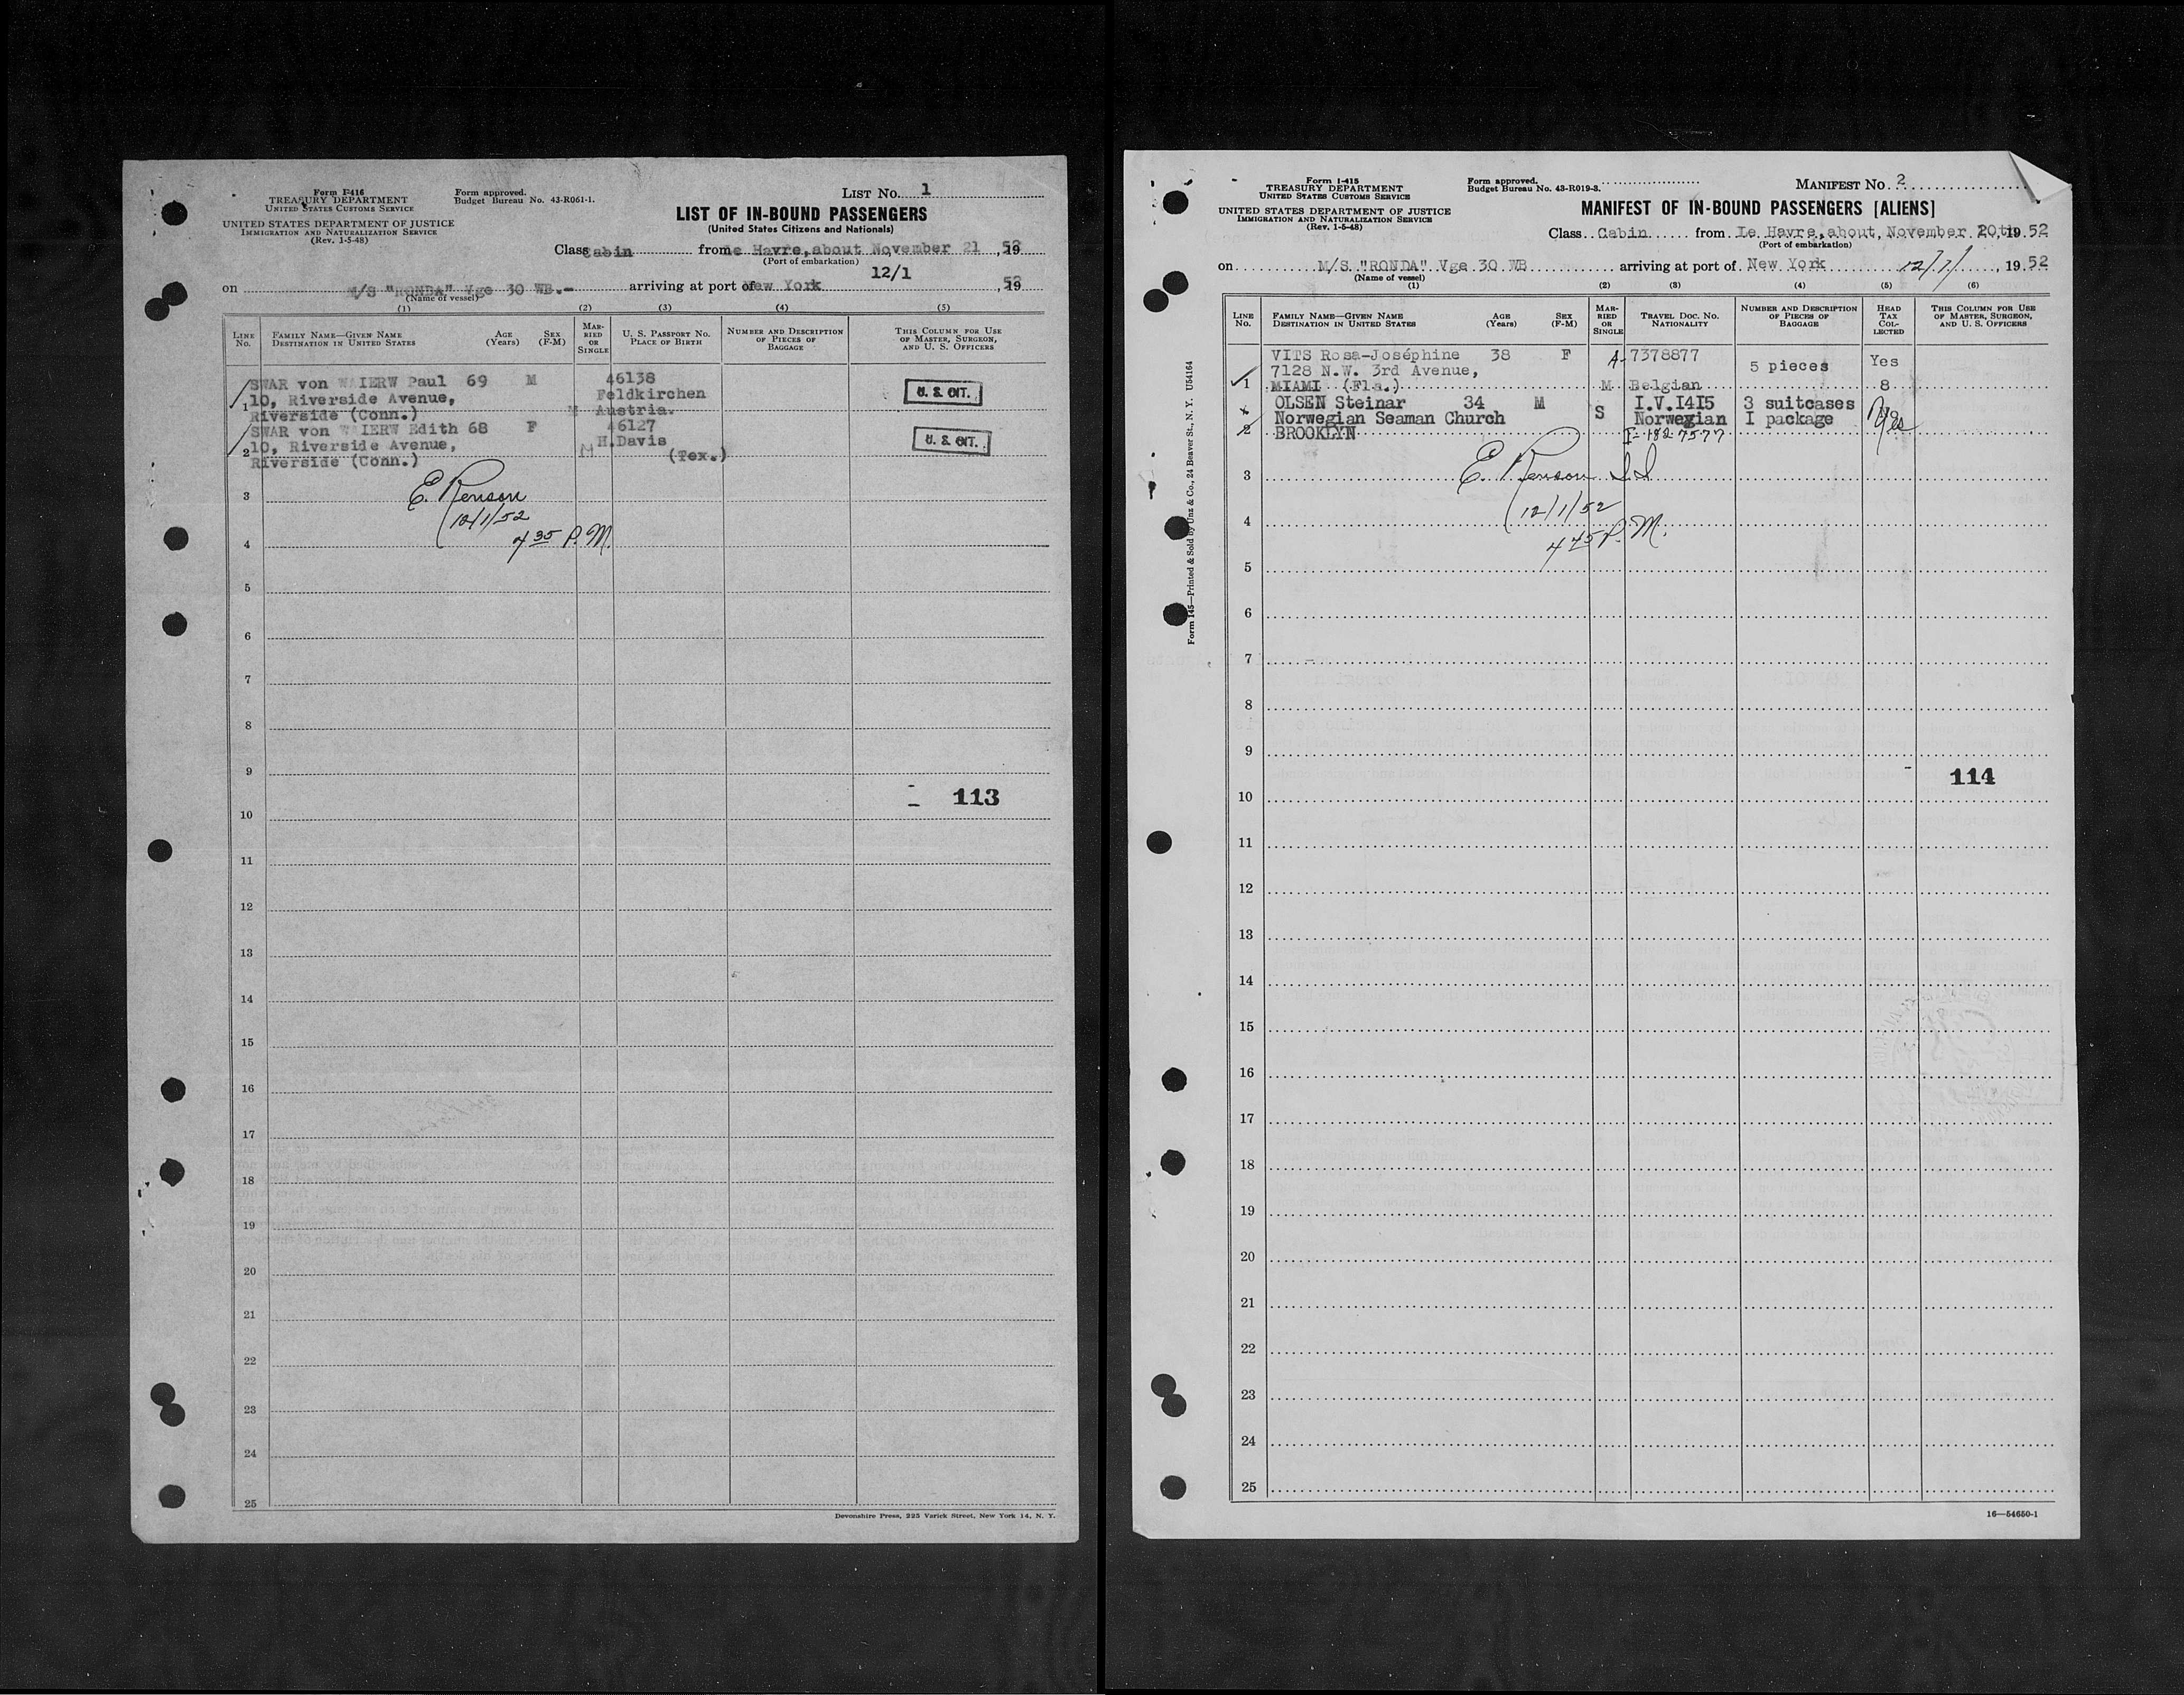 Form I-416
TREASURY DEPARTMENT
UNITED STATES CUSTOMS SERVICE
UNITED STATES DEPARTMENT OF JUSTICE
IMMIGRATION AND NATURALIZATION SERVICE
(Rev. 1-5-48)
Form approved.
Budget Bureau No. 43-R061-1.
LIST No. 1
LIST OF IN-BOUND PASSENGERS
(United States Citizens and Nationals)
Class Cabin from Le Havre, about November 21, 1952
(Port of embarkation)
12/1
on M/S "RONDA" Vge 30 WB.- arriving at port of New York, 1952
(Name of vessel)
(1) (2) (3) (4) (5)
LINE No.
FAMILY NAME—GIVEN NAME
DESTINATION IN UNITED STATES
AGE (Years)
SEX (F-M)
MARRIED OR SINGLE
U. S. PASSPORT NO.
PLACE OF BIRTH
NUMBER AND DESCRIPTION OF PIECES OF BAGGAGE
THIS COLUMN FOR USE OF MASTER, SURGEON, AND U. S. OFFICERS
SWAR von WAIERW Paul 69 M 46138
10, Riverside Avenue, Feldkirchen U. S. CIT.
1 Riverside (Conn.) M Austria.
SWAR von WAIERW Edith 68 F 46127
10, Riverside Avenue, M H.Davis U. S. CIT.
2 Riverside (Conn.) (Tex.)
E. Renson
12/1/52
4 35 P.M.
3
4
5
6
7
8
9
113
10
11
12
13
14
15
16
17
18
19
20
21
22
23
24
25
Devonshire Press, 225 Varick Street, New York 14, N. Y.
Form I-415
TREASURY DEPARTMENT
UNITED STATES CUSTOMS SERVICE
UNITED STATES DEPARTMENT OF JUSTICE
IMMIGRATION AND NATURALIZATION SERVICE
(Rev. 1-5-48)
Form approved.
Budget Bureau No. 43-R019-3.
MANIFEST No. 2
MANIFEST OF IN-BOUND PASSENGERS [ALIENS]
Class Cabin from Le Havre, about, November 20th, 1952
(Port of embarkation)
on M/S "RONDA" Vge 30 WB arriving at port of New York 12/1/, 1952
(Name of vessel)
(1) (2) (3) (4) (5) (6)
LINE No.
FAMILY NAME—GIVEN NAME
DESTINATION IN UNITED STATES
AGE (Years)
SEX (F-M)
MARRIED OR SINGLE
TRAVEL DOC. NO.
NATIONALITY
NUMBER AND DESCRIPTION OF PIECES OF BAGGAGE
HEAD TAX COLLECTED
THIS COLUMN FOR USE OF MASTER, SURGEON, AND U. S. OFFICERS
VITS Rosa-Joséphine 38 F A-7378877 5 pieces Yes
7128 N.W. 3rd Avenue,
1 MIAMI (Fla.) M Belgian 8
OLSEN Steinar 34 M S I.V.I4I5 3 suitcases
Norwegian Seaman Church Norwegian I package Yes
2 BROOKLYN I-1827577
E. Renson
12/1/52
4 45 P.M.
3
4
5
6
7
8
9
114
10
11
12
13
14
15
16
17
18
19
20
21
22
23
24
25
16—54650-1
Form 145—Printed & Sold by Unz & Co., 24 Beaver St., N. Y. U54164